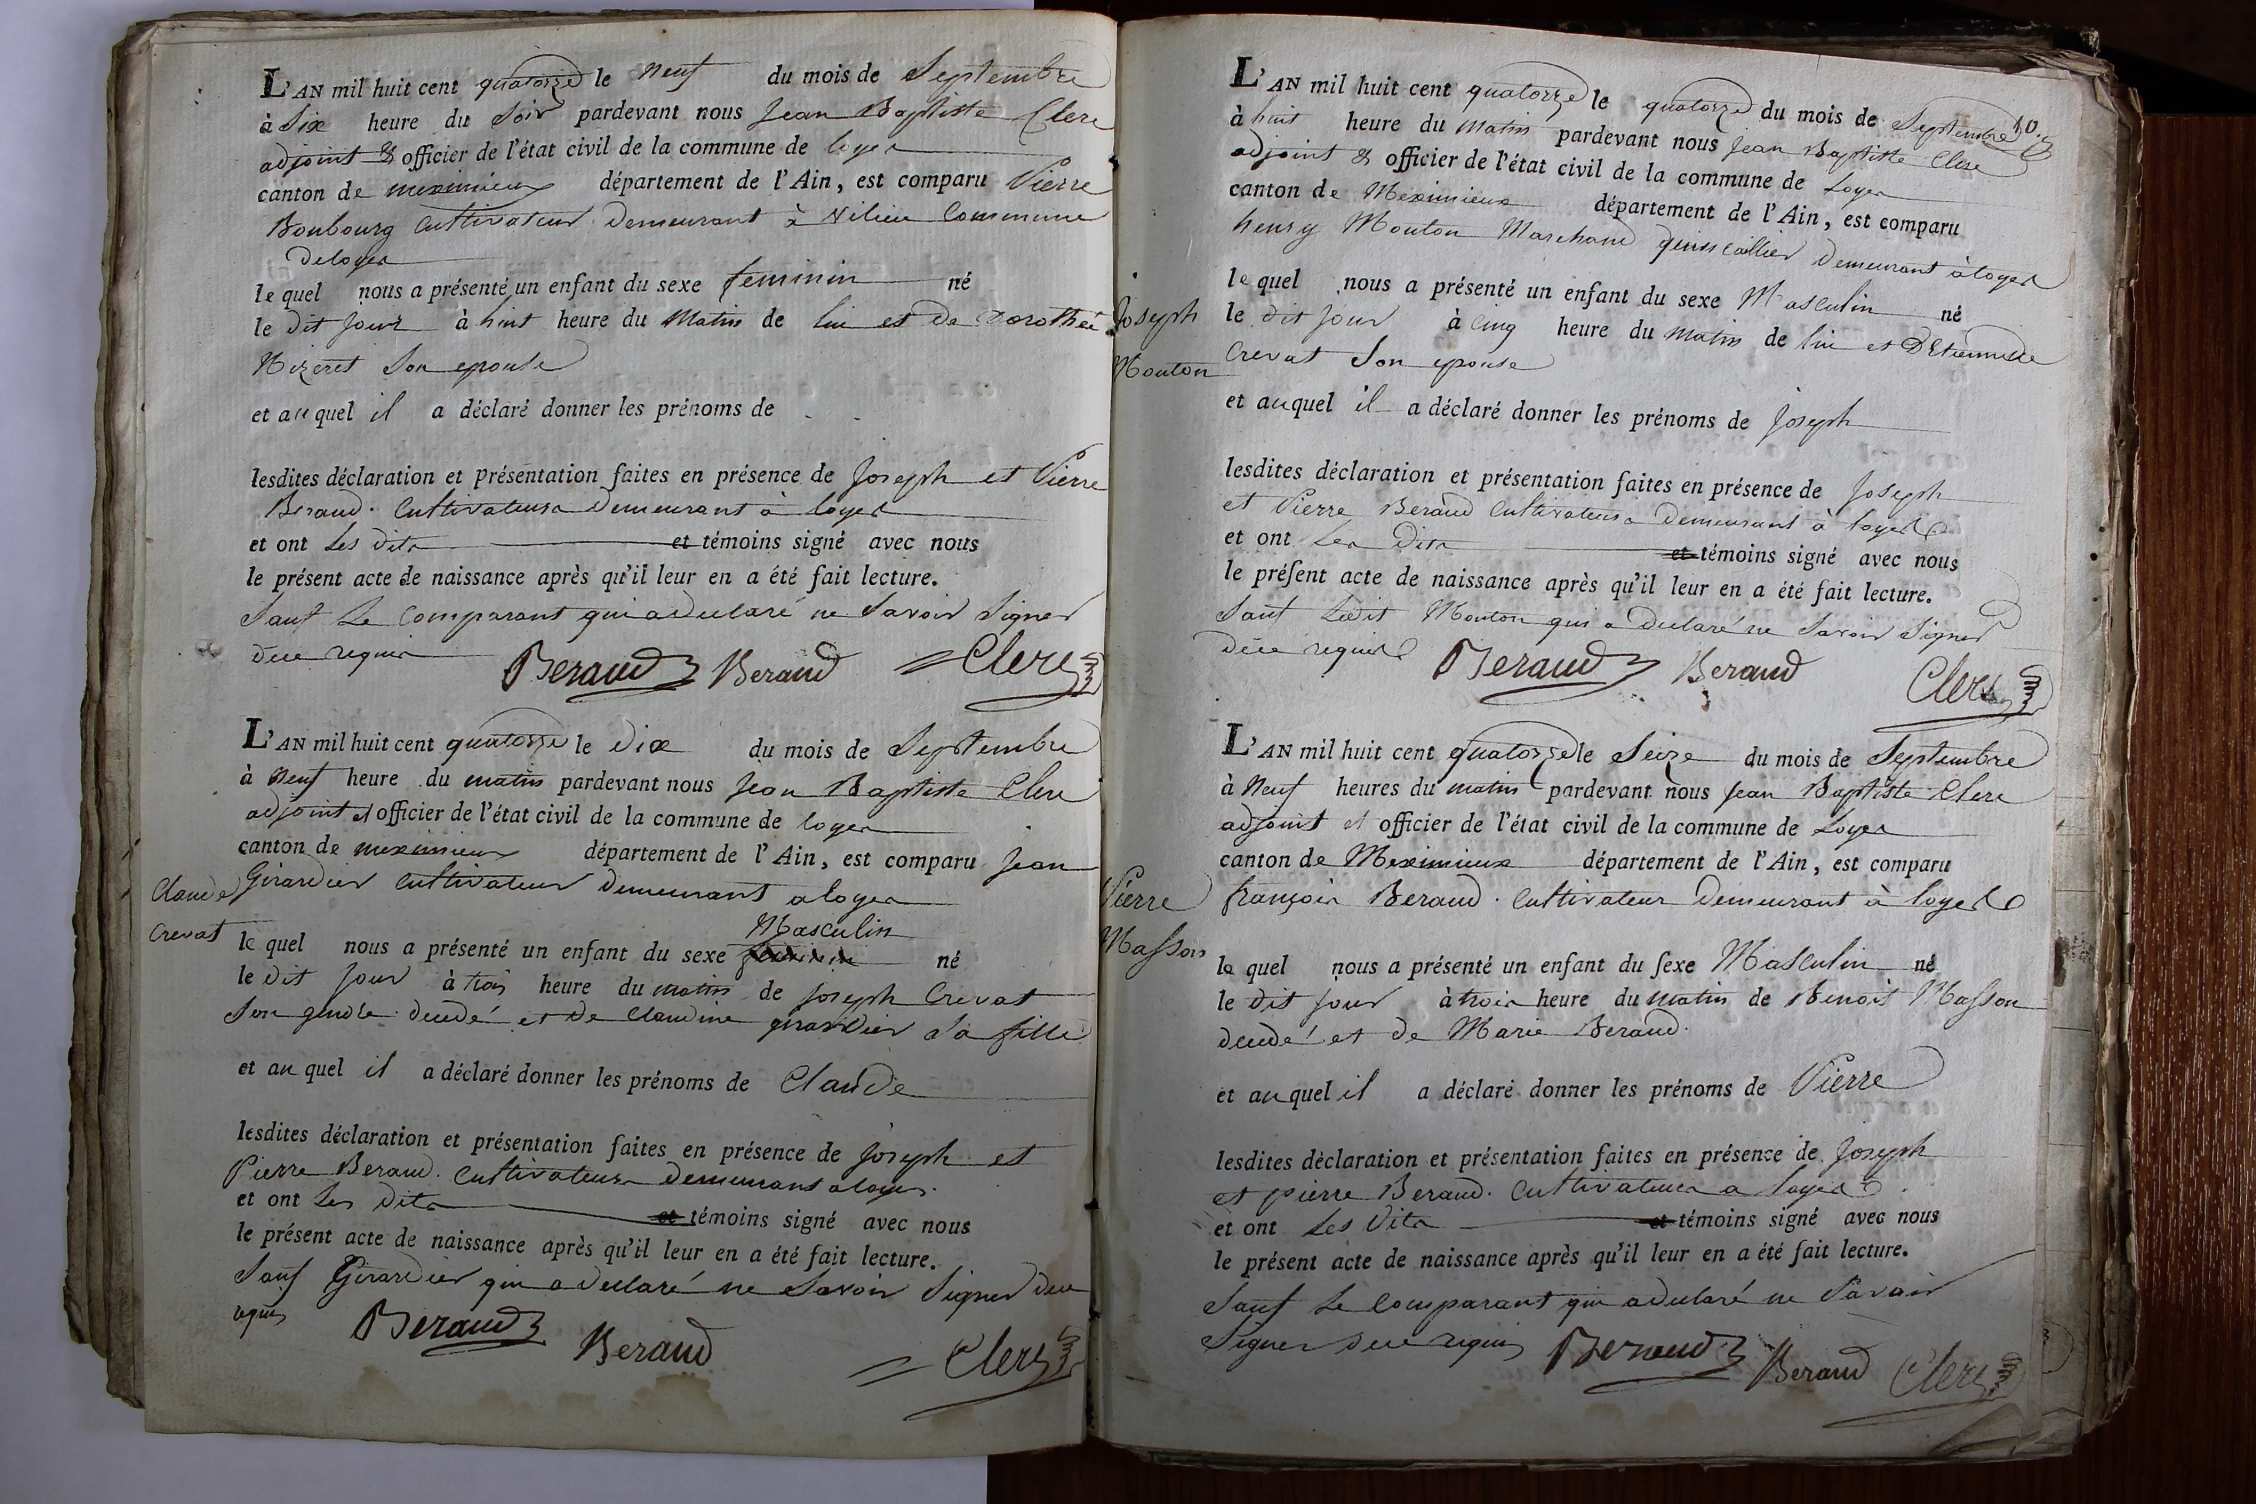 L'AN mil huit cent quatorze le neuf du mois de Septembre
à Six heure du Soir pardevant nous Jean Baptiste Clerc
adjoint & officier de l'état civil de la commune de loyes
canton de meximieux département de l'Ain, est comparu Pierre
Boubourg Cultivateur Demeurant à Vilieu Commune
De loyes
le quel nous a présenté un enfant du sexe feminin né
le dit jour à huit heure du Matin de lui et de Dorothée
Mizeret Son epouse
et au quel il a déclaré donner les prénoms de
lesdites déclaration et présentation faites en présence de Joseph et Pierre
Beraud. Cultivateurs Demeurant à loyes
et ont Les dits et témoins signé avec nous
le présent acte de naissance après qu'il leur en a été fait lecture.
Sauf Le Comparant qui a declaré ne Savoir Signer
de ce requis
Beraud Beraud Clerc
L'AN mil huit cent quatorze le Dix du mois de Septembre
à neuf heure du matin pardevant nous Jean Baptiste Clerc
adjoint et officier de l'état civil de la commune de loyes
canton de meximieux département de l'Ain, est comparu Jean
Girardier Cultivateur Demeurant a loyes
Claude
Crevat
Masculin
le quel nous a présenté un enfant du sexe feminin né
le dit jour à trois heure du matin de Joseph Crevat
Son gendre decedé et de Claudine girardier Sa fille
et au quel il a déclaré donner les prénoms de Claude
lesdites déclaration et présentation faites en présence de Joseph et
Pierre Beraud. Cultivateurs Demeurant a loyes.
et ont Les dits et témoins signé avec nous
le présent acte de naissance après qu'il leur en a été fait lecture.
Sauf Girardier qui a declaré ne Savoir Signer de ce
requis
Beraud Beraud Clerc
10.
L'AN mil huit cent quatorze le quatorze du mois de Septembre
à huit heure du Matin pardevant nous Jean Baptiste Clerc
adjoint & officier de l'état civil de la commune de Loyes
canton de Meximieux département de l'Ain, est comparu
henry Mouton Marchand quincaillier Demeurant à loyes
Joseph
Mouton
le quel nous a présenté un enfant du sexe Masculin né
le dit jour à cinq heure du matin de lui et D'Etiennette
Crevat Son epouse
et au quel il a déclaré donner les prénoms de Joseph
lesdites déclaration et présentation faites en présence de Joseph
et Pierre Beraud Cultivateurs Demeurant à loyes
et ont Les Dits et témoins signé avec nous
le préſent acte de naissance après qu'il leur en a été fait lecture.
Sauf Ledit Mouton qui a Declaré ne Savoir Signer
de ce requis
Beraud Beraud Clerc
L'AN mil huit cent quatorze le Seize du mois de Septembre
à Neuf heures du matin pardevant nous Jean Baptiste Clerc
adjoint et officier de l'état civil de la commune de Loyes
canton de Meximieux département de l'Ain, est comparu
françois Beraud. Cultivateur Demeurant à loyes
Pierre
Masson
le quel nous a présenté un enfant du ſexe Masculin né
le dit jour à trois heure du matin de Benoit Masson
decedé et de Marie Beraud.
et au quel il a déclaré donner les prénoms de Pierre
lesdites dèclaration et présentation faites en présence de Joseph
et pierre Beraud. Cultivateurs a loyes
et ont Les dits et témoins signé avec nous
le présent acte de naissance après qu'il leur en a été fait lecture.
Sauf Le Comparant qui a declaré ne Savoir
Signer de ce requis Beraud Beraud Clerc